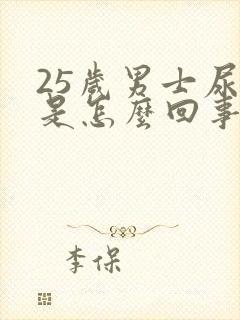 25歲男士尿
是怎麼回事
李保